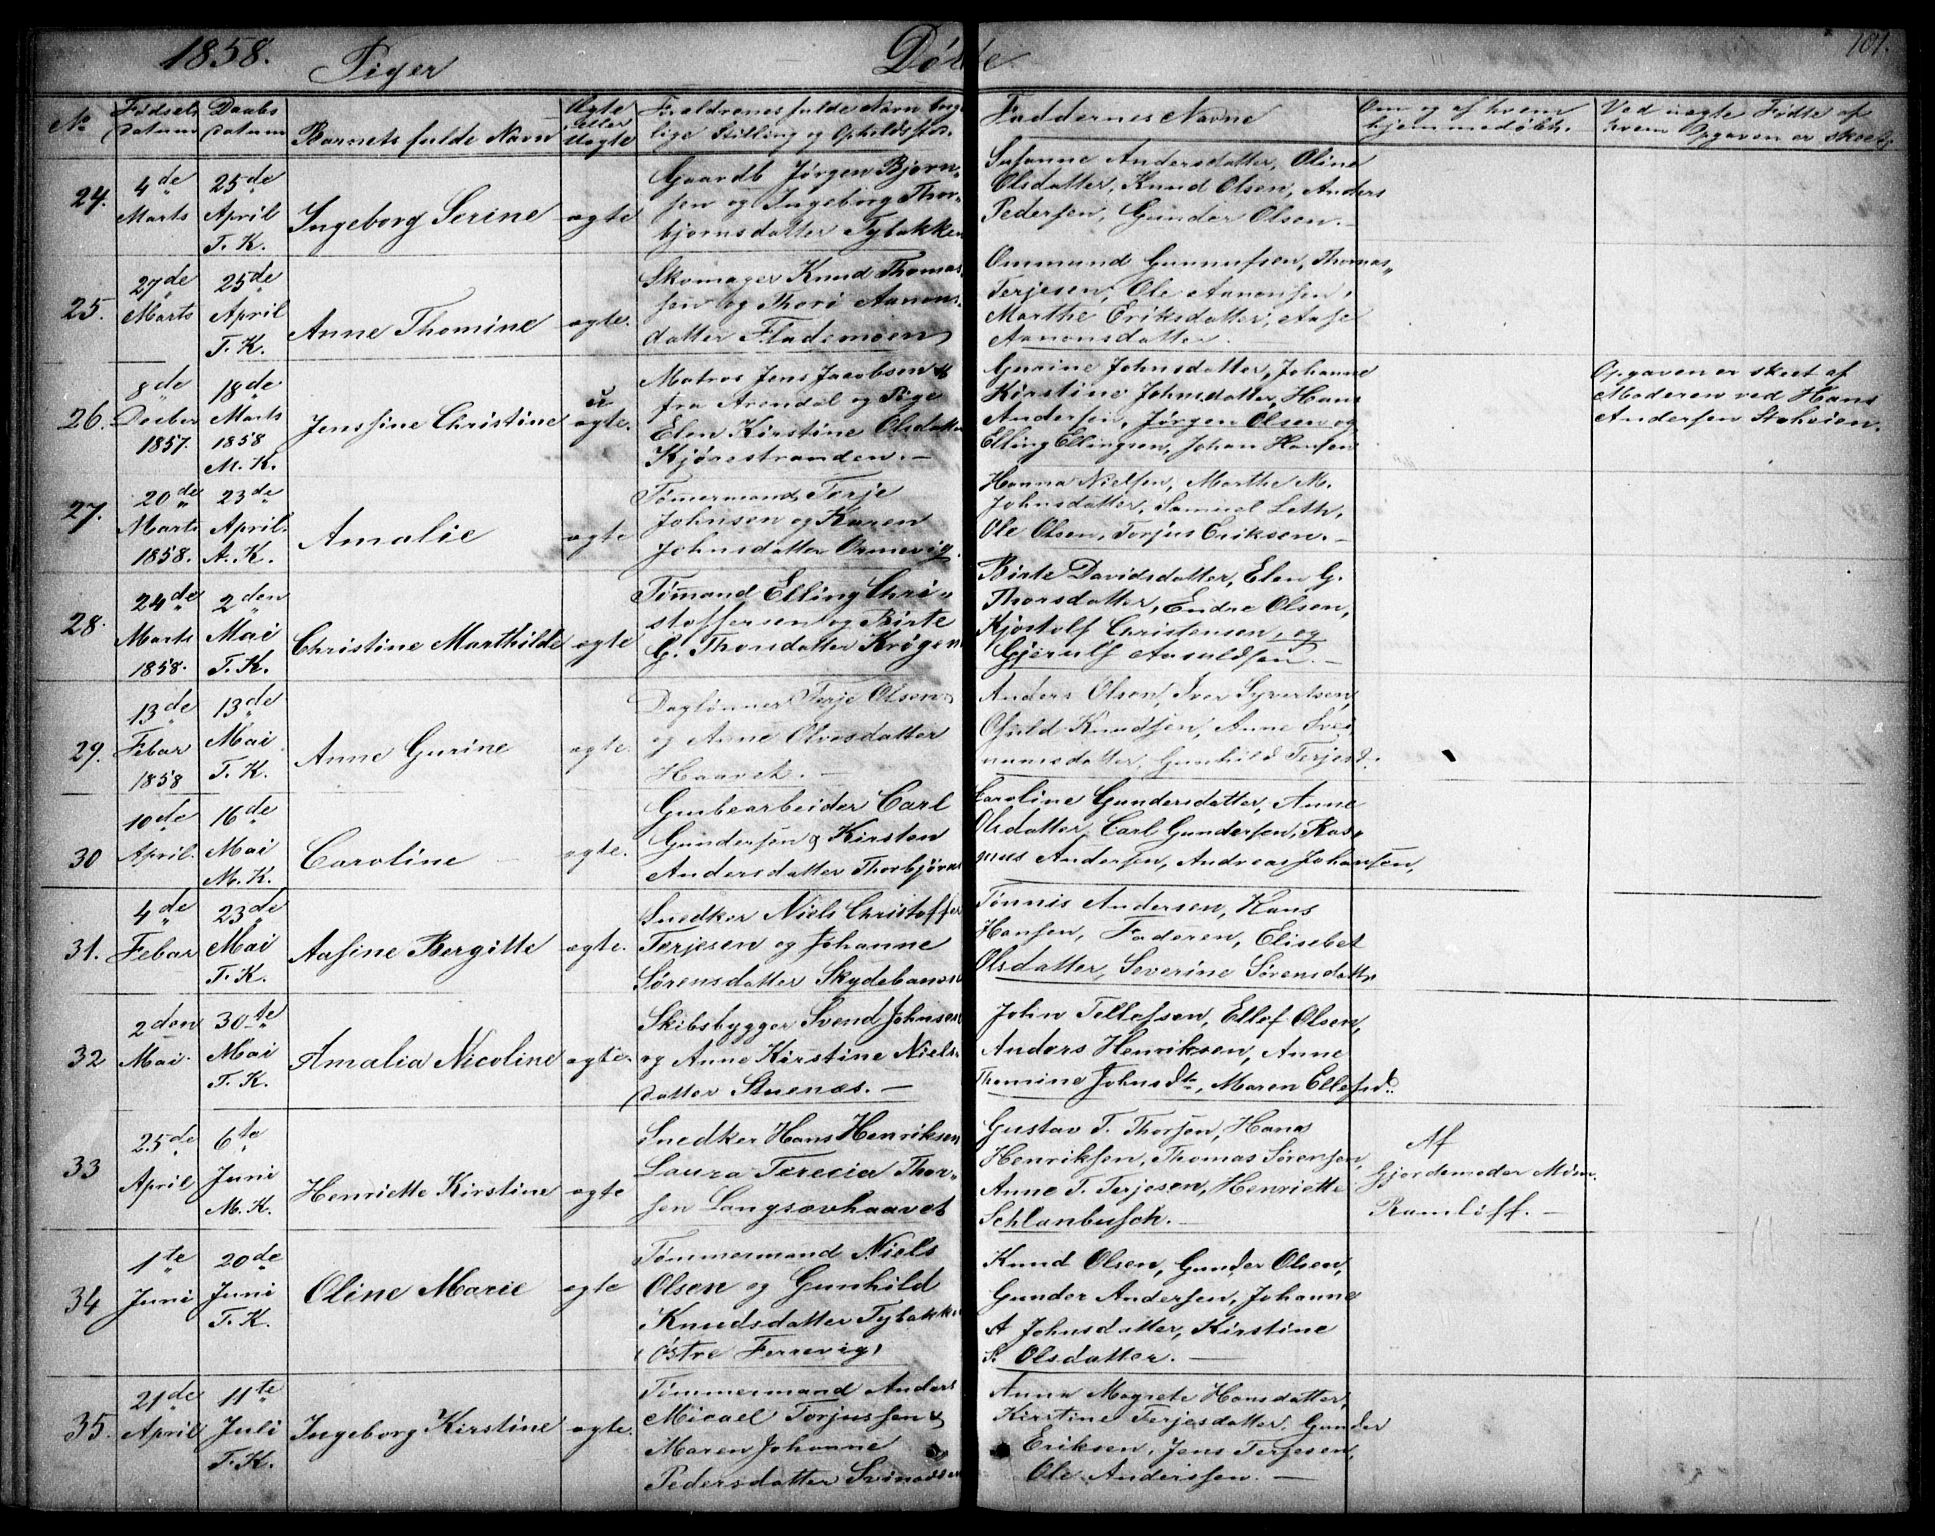 1858. Piger Døbte 101.
No
Fødsels Datum
Daabs Datum
Barnets fulde Navn
Ægte eller Uægte
Forældrenes fulde Navn borgelige Stilling og Opholdsst.
Faddernes Navne
Om og af hvem hjemmedøbt.
Ved uægte Fødte af hvem Opgaven er skeet.
24.
4de Marts
25de April T. K.
Ingeborg Serine
ægte
Gaardb Jørgen Bjørn-
sen og Ingeborg Thor-
bjørnsdatter Tybakken
Susanne Andersdatter, Oline
Olsdatter, Knud Olsen, Anders
Pedersen, Gunder Olsen.
25.
27de Marts
25de April T. K.
Anne Thomine
ægte.
Skomager Knud Thomas-
sen og Thori Aanons-
datter Flademoen
Ommund Gunnufsen, Thomas
Terjesen, Ole Aanonsen,
Marthe Eriksdatter, Aase
Aanonsdatter.
26.
8de Decber 1857.
18de Marts 1858 M. K.
Jenssine Christine
uægte.
Matros Jens Jacobsen
fra Arendal og Pige
Elen Kirstine Olsdatter
Kjørestranden.
Gurine Johnsdatter, Johanne
Kirstine Johnsdatter, Hans
Andersen, Jørgen Olsen og
Elling Ellingsen, Johan Hansen
Opgaven er skeet af
Moderen ved Hans
Andersen Stoheien.
27.
20de Marts 1858.
23de April. A. K.
Amalie
ægte
Tømermand Terje
Johnsen og Karen
Johnsdatter Ormevig.
Hanna Nielsen, Marthe M.
Johnsdatter, Samuel Leth,
Ole Olsen, Torjus Eriksen.
28.
24de Marts 1858.
2den Mai T. K.
Christine Marthilde
ægte
Tømand Elling Chri-
stoffersen og Birte
G. Thorsdatter Krøgen
Birte Davidsdatter, Elen G.
Thorsdatter, Endre Olsen,
Kjøstolf Christensen, og
Gjerulf Aasuldsen.
29.
13de Febar 1858
13de Mai T. K.
Anne Gurine
ægte.
Daglønner Terje Olsen
og Anne Olvesdatter
Haavet.
Anders Olsen, Iver Syvertsen,
Osuld Knudsen, Anne Svei
nunsdatter, Gunhild Terjesd.
30
10de April.
16de Mai M. K.
Caroline
ægte.
Grubearbeider Carl
Gundersen & Kirsten
Andersdatter Thorbjørns
Caroline Gundersdatter, Anne
Olsdatter, Carl Gundersen, Ras-
mus Andersen, Andreas Johansen,
31.
4de Febar
23de Mai T. K.
Aasine Bergitte
ægte.
Snedker Niels Christoffer
Terjesen og Johanne
Sørensdatter Skydebanes
Tønnis Andersen, Hans
Hansen, Faderen, Elisebet
Olsdatter, Severine Sørensdattr
32
2den Mai.
30te Mai T. K.
Amalia Nicoline
ægte.
Skibsbygger Svend Johnsen
og Anne Kirstine Niels-
datter Stuenæs.
John Tellefsen, Ellef Olsen,
Anders Henriksen, Anne
Thomine Johnsdtr, Maren Ellefsd.
33
25de April
6te Juni M. K.
Henriette Kirstine
ægte
Snedker Hans Henriksen
Laura Terecia Thor-
sen Langsævhaavet
Gustav T. Thorsen, Hans
Henriksen, Thomas Sørensen,
Anne T. Terjesen, Henriette
Schlanbusch.
Af
Gjordemoder Mdm.
Ramløff.
34
1te Juni
20de Juni T. K.
Oline Marie
ægte
Tømmermand Niels
Olsen og Gunhild
Knudsdatter Tybakke
Østre Ferrevig,
Knud Olsen, Gunder Olsen,
Gunder Andersen, Johanne
A Johnsdatter, Kirstine
S. Olsdatter.
35.
21de April
11te Juli T. K.
Ingeborg Kirstine
ægte.
Tømmermand Anders
Micael Torjussen &
Maren Johanne
Pedersdatter Svinodden
Anna Magrete Hansdatter,
Kirstine Terjesdatter, Gunder
Eriksen, Jens Terjesen,
Ole Anderssen.